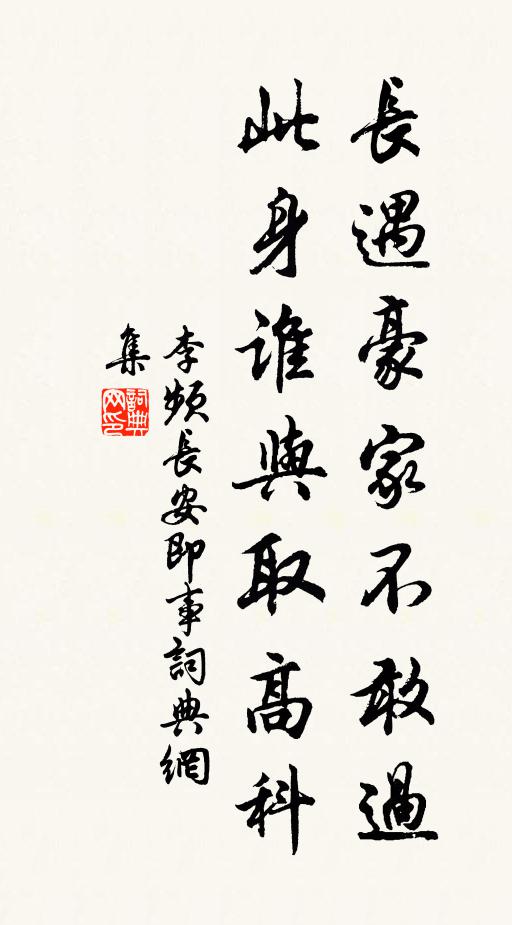 長遇豪家不敢過
此身誰與取高科
李頻長安即事詞典網
集
詞典
网印